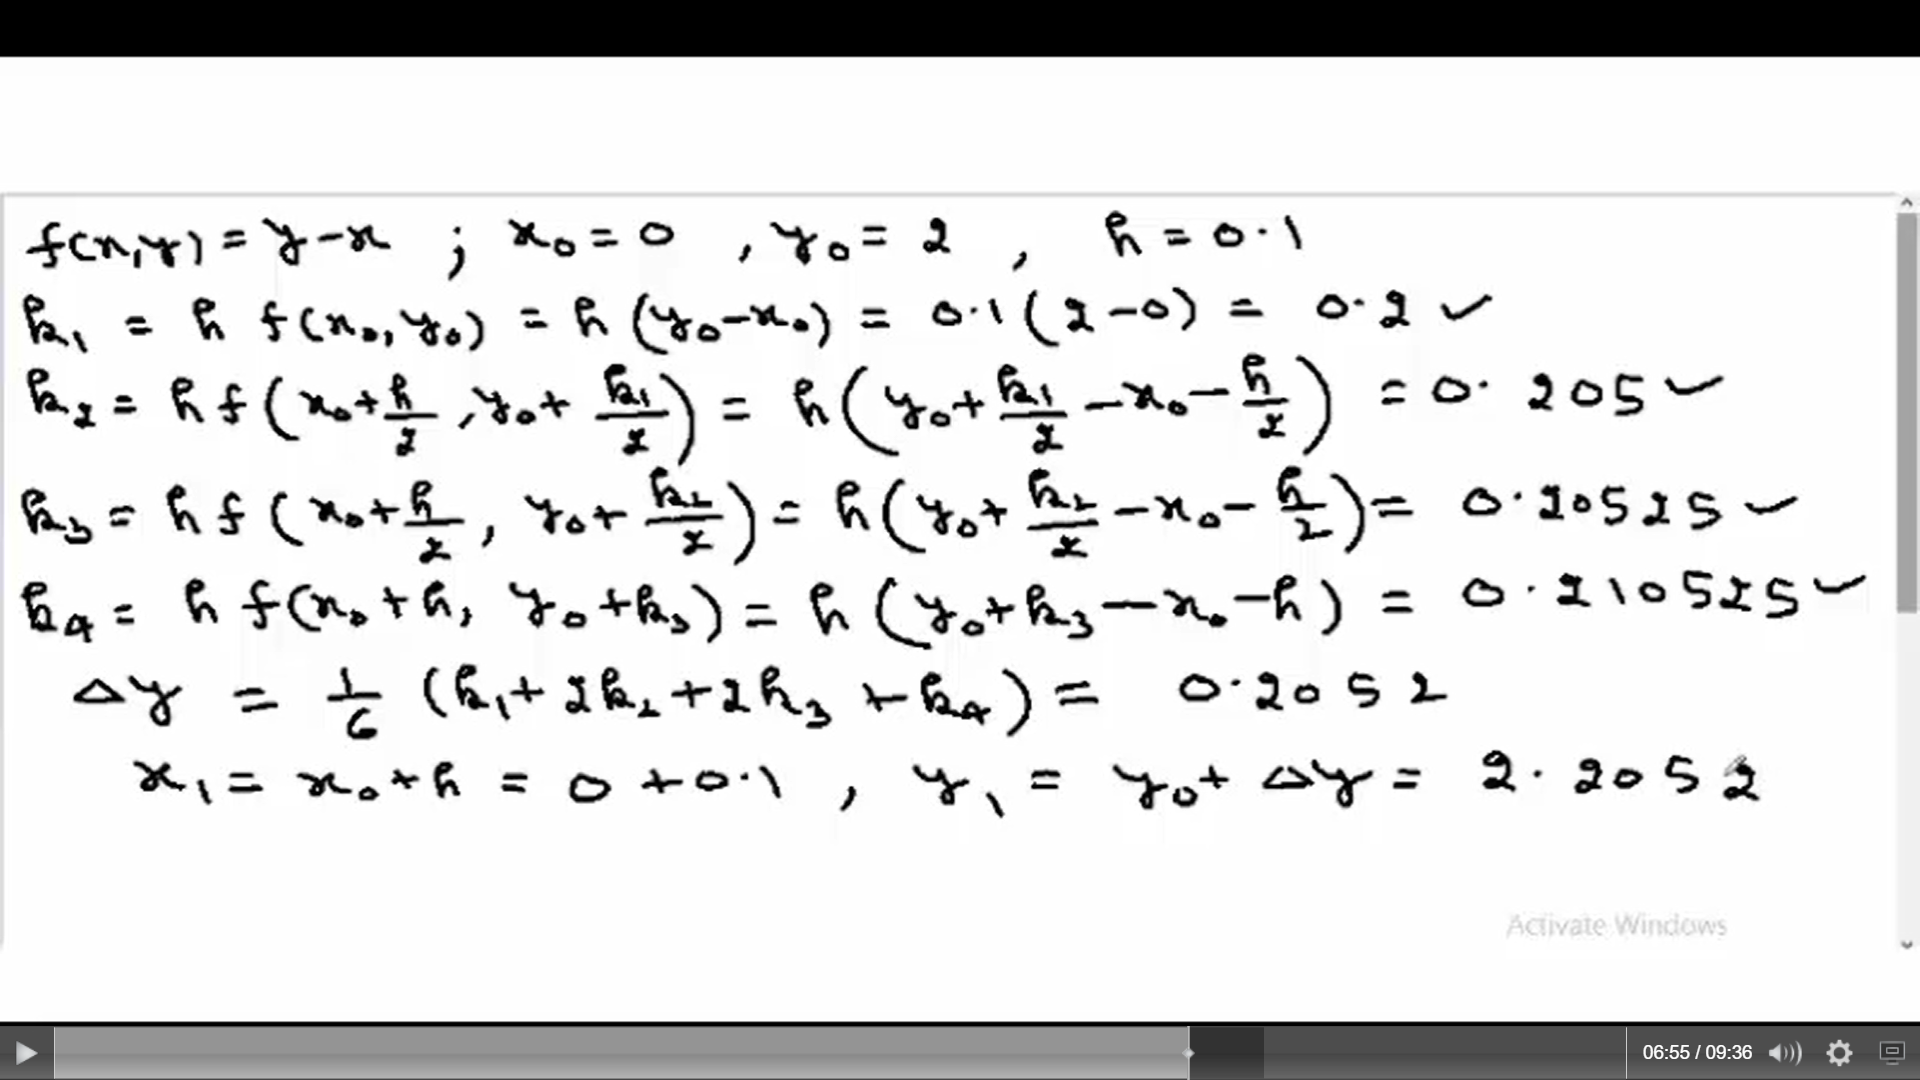 f(x,y) = y-x ; x₀ = 0 , y₀ = 2 , h = 0.1
k₁ = h f(x₀, y₀) = h (y₀-x₀) = 0.1 (2-0) = 0.2 ✓
k₂ = h f(x₀+h/2, y₀+k₁/2) = h(y₀+k₁/2-x₀-h/2) = 0.205 ✓
k₃ = h f(x₀+h/2, y₀+k₂/2) = h(y₀+k₂/2-x₀-h/2) = 0.20525 ✓
k₄ = h f(x₀+h, y₀+k₃) = h (y₀+k₃-x₀-h) = 0.210525 ✓
Δy = 1/6 (k₁+2k₂+2k₃+k₄) = 0.2052
x₁ = x₀+h = 0+0.1 , y₁ = y₀+Δy = 2.2052
Activate Windows
06:55 / 09:36